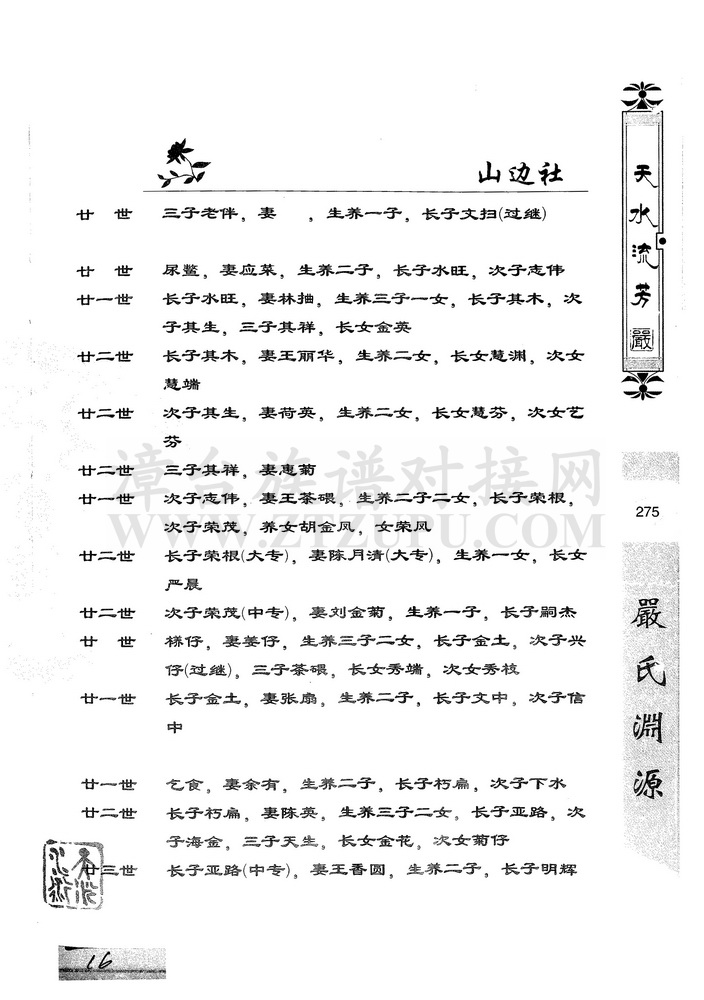 山边社
廿　世　三子老伴，妻　　，生养一子，长子文扫(过继)
廿　世　尿鳖，妻应菜，生养二子，长子水旺，次子志伟
廿一世　长子水旺，妻林抽，生养三子一女，长子其木，次
子其生，三子其祥，长女金英
廿二世　长子其木，妻王丽华，生养二女，长女慧渊，次女
慧端
廿二世　次子其生，妻荷英，生养二女，长女慧芬，次女艺
芬
廿二世　三子其祥，妻惠菊
廿一世　次子志伟，妻王茶碨，生养二子二女，长子荣根，
次子荣茂，养女胡金凤，女荣风
廿二世　长子荣根(大专)，妻陈月清(大专)，生养一女，长女
严晨
廿二世　次子荣茂(中专)，妻刘金菊，生养一子，长子嗣杰
廿　世　稊仔，妻姜仔，生养三子二女，长子金土，次子兴
仔(过继)，三子茶碨，长女秀端，次女秀枝
廿一世　长子金土，妻张扇，生养二子，长子文中，次子信
中
廿一世　乞食，妻余有，生养二子，长子朽扁，次子下水
廿二世　长子朽扁，妻陈英，生养三子二女，长子亚路，次
子海金，三子天生，长女金花，次女菊仔
廿三世　长子亚路(中专)，妻王香圆，生养二子，长子明辉
天水流芳
嚴
275
嚴氏淵源
16
漳台族谱对接网
WWW.ZTZUPU.COM